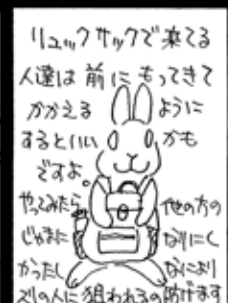 リュックサックで来てる
人達は前にもってきて
かかえる ように
するといい かも
ですよ。
やってみたら 他の方の
じゃまに なりにく
かったし なにより
人に狙われるの防げます